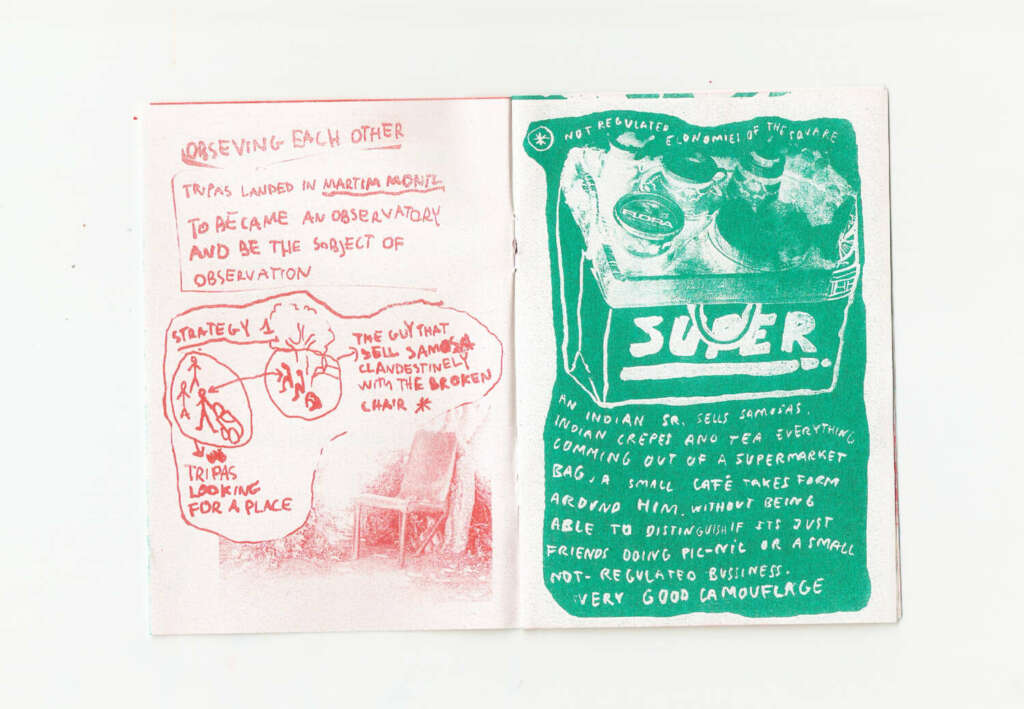 OBSEVING EACH OTHER
TRIPAS LANDED IN MARTIM MONIZ
TO BECAME AN OBSERVATORY
AND BE THE SUBJECT OF
OBSERVATION
STRATEGY 1
THE GUY THAT
SELL SAMOSA
CLANDESTINELY
WITH THE BROKEN
CHAIR *
TRIPAS
LOOKING
FOR A PLACE
* NOT REGULATED ECONOMIES OF THE SQUARE
FLORA
SUPER
AN INDIAN SR. SELLS SAMOSAS,
INDIAN CREPES AND TEA EVERYTHING
COMMING OUT OF A SUPERMARKET
BAG, A SMALL CAFÉ TAKES FORM
AROUND HIM. WITHOUT BEING
ABLE TO DISTINGUISH IF ITS JUST
FRIENDS DOING PIC-NIC OR A SMALL
NOT-REGULATED BUSSINESS.
VERY GOOD CAMOUFLAGE